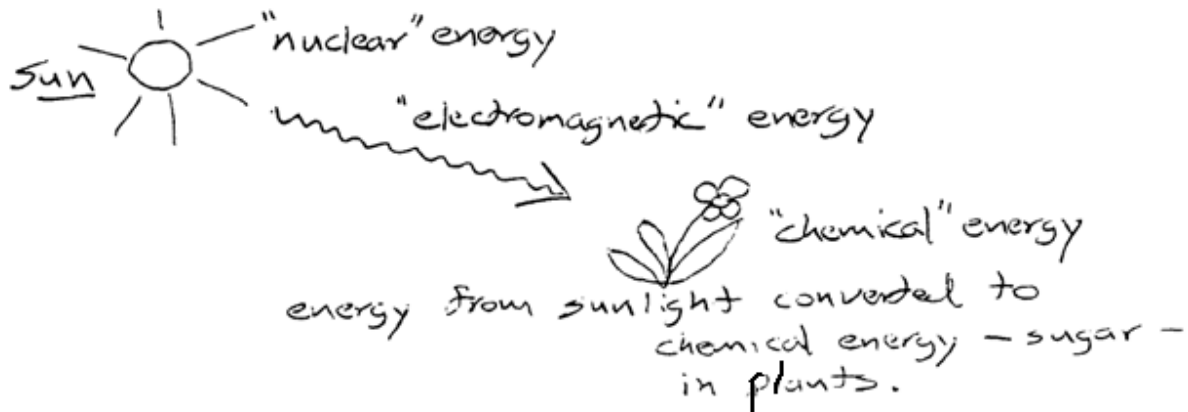 "nuclear" energy
Sun
"electromagnetic" energy
"chemical" energy
energy from sunlight converted to
chemical energy - sugar -
in plants.